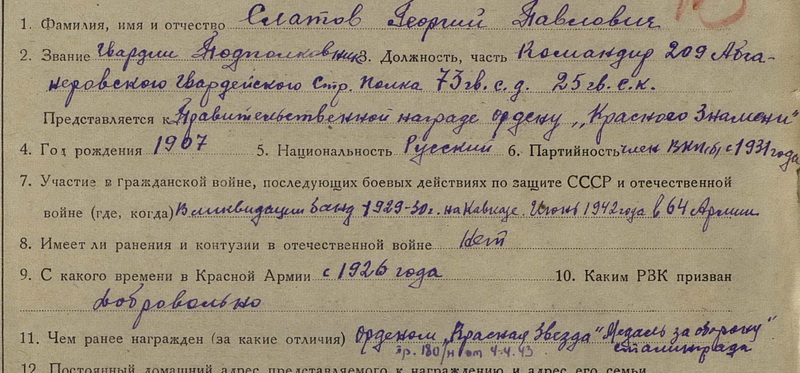 1. Фамилия, имя и отчество Слатов Георгий Павлович
2. Звание Гвардии Подполковник 3. Должность, часть Командир 209 Абга-
неровского Гвардейского Стр. полка 73 гв. с. д. 25 гв. с. к.
Представляется к Правительственной награде ордену „Красного Знамени"
4. Год рождения 1907 5. Национальность Русский 6. Партийность член ВКП(б) с 1931 года
7. Участие в гражданской войне, последующих боевых действиях по защите СССР и отечественной
войне (где, когда) В ликвидации банд 1929-30г. на Кавказе. Июнь 1942 года в 64 Армии
8. Имеет ли ранения и контузии в отечественной войне Нет
9. С какого времени в Красной Армии с 1926 года 10. Каким РВК призван
Добровольно
11. Чем ранее награжден (за какие отличия) орденом „Красная Звезда" Медаль за оборону
пр. 180/н от 4.4.43 сталинграда
12. Постоянный домашний адрес представляемого к награждению и адрес его семьи